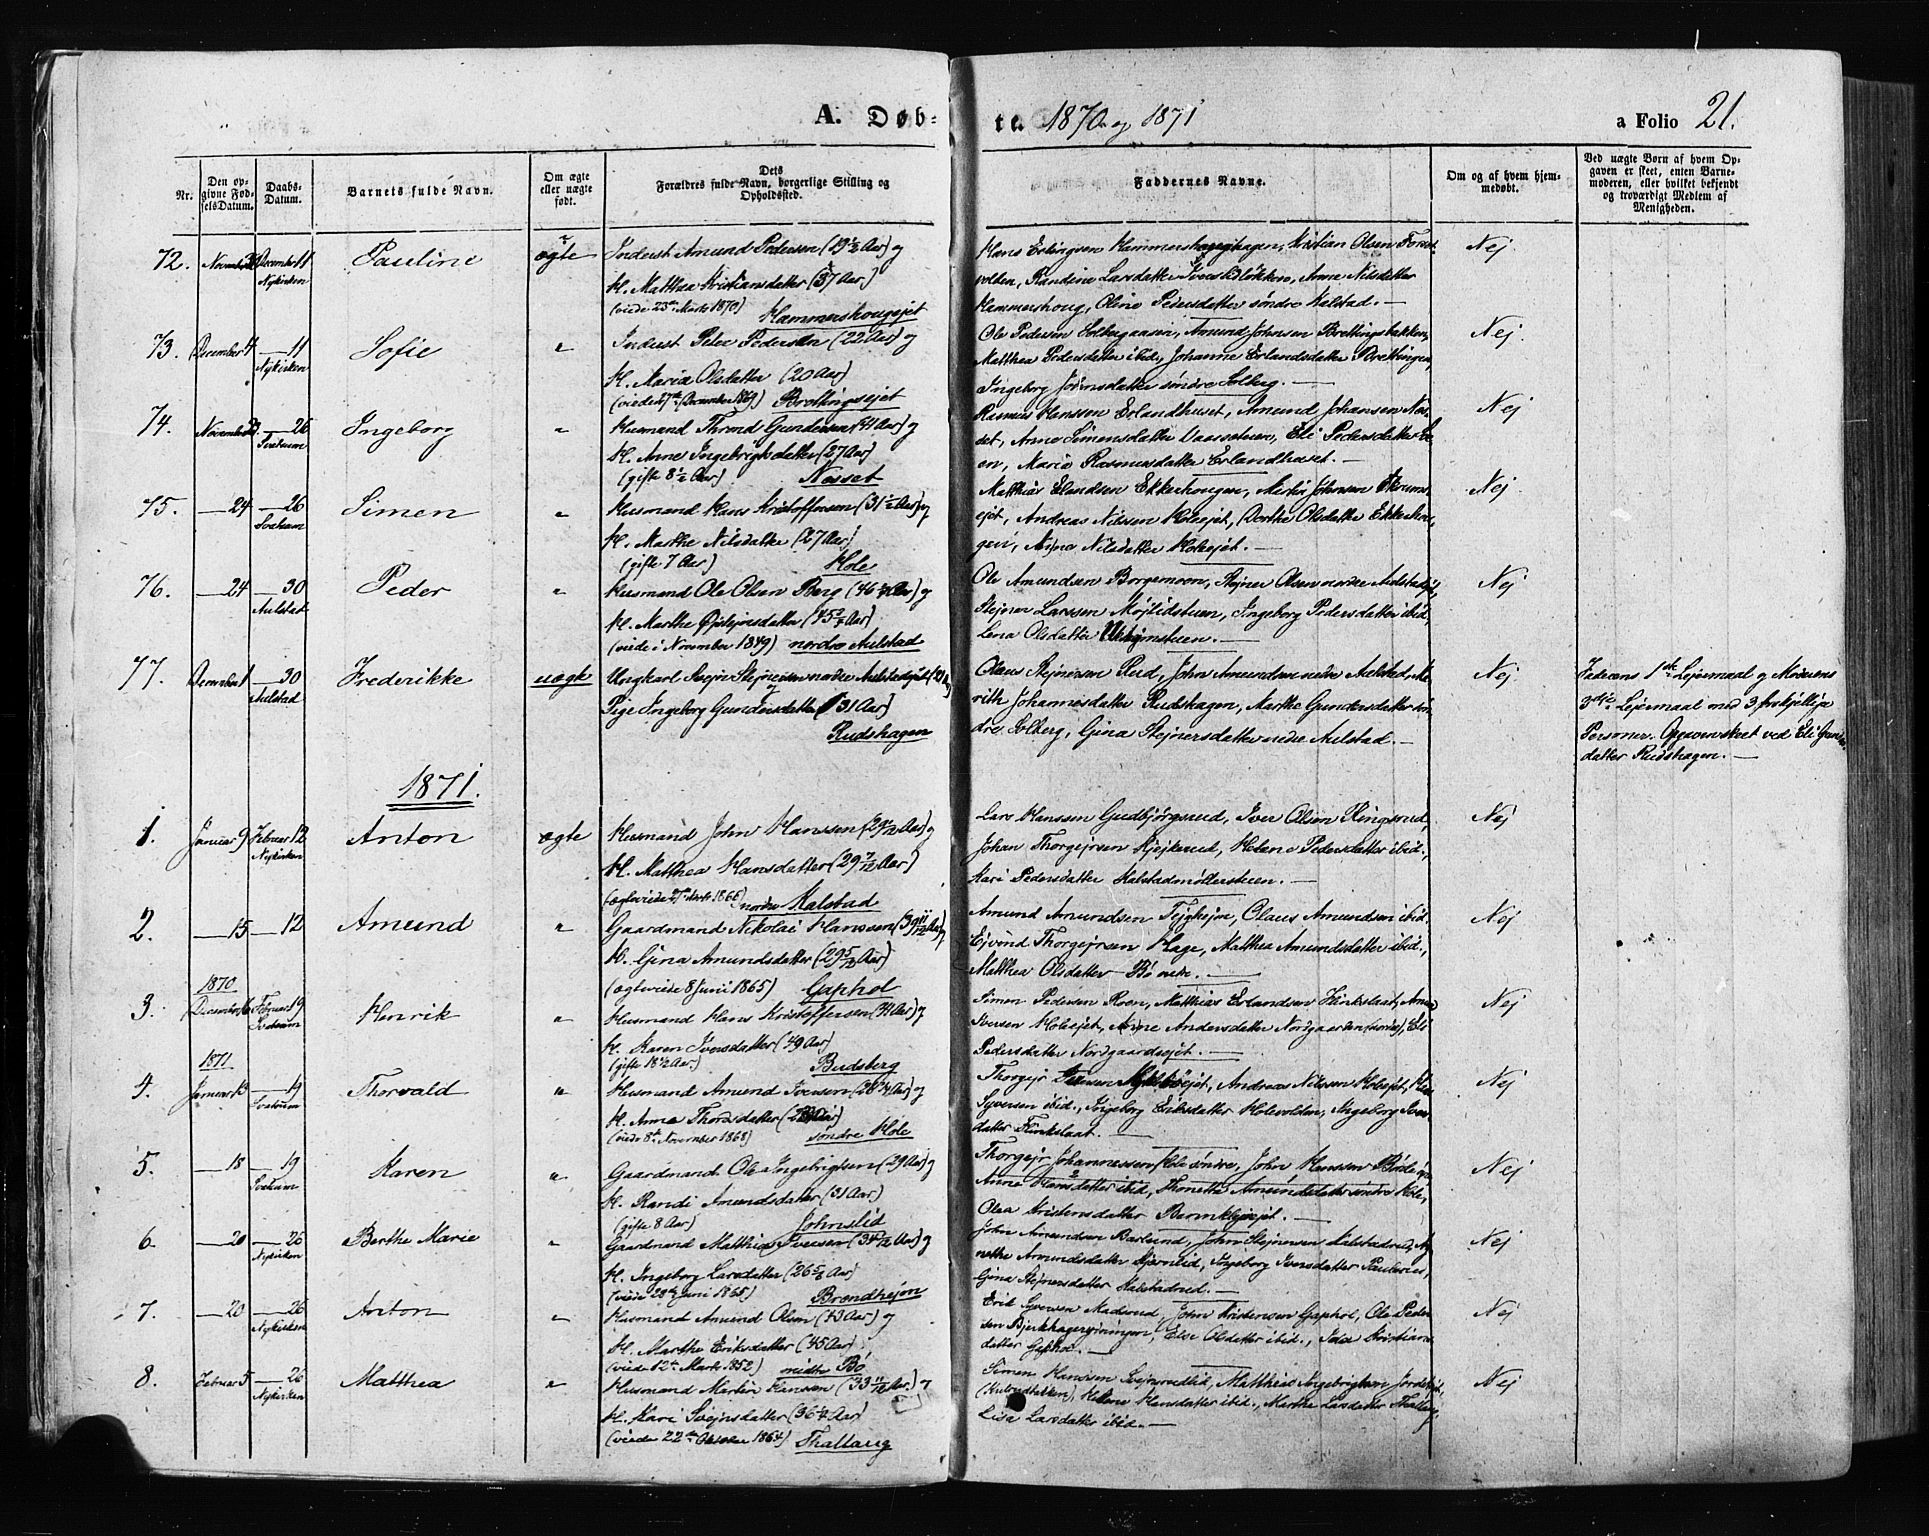 A. Døb-
te. 1870 og 1871
a Folio 21.
Nr.
Den op-
givne Fød-
selsDatum.
Daabs-
Datum.
Barnets fulde Navn.
Om ægte
eller uægte
født.
Dets
Forældres fulde Navn, borgerlige Stilling og
Opholdssted.
Faddernes Navne.
Om og af hvem hjem-
medøbt.
Ved uægte Børn af hvem Op-
gaven er skeet, enten Barne-
moderen, eller hvilket bekjendt
og troværdigt Medlem af
Menigheden.
72. November December 11 Pauline ægte Inderst Amund Pedersen (19 1/2 Aar) og
Nykirken
K. Matthea Kristiansdatter (37 Aar)
(viede 23de Marts 1870) Hammershougejet
Hans Erlingsen Hammershaughagen, Kristian Olsen
volden, Randine Larsdatter Iverslidløkken, Anne Nilsdatter
Hammershoug, Oline Pedersdatter søndre Kalstad.
Nej
73. December 4 — 11 Sofie " Inderst Peter Pedersen (22 Aar) og
Nykirken
K. Maria Olsdatter (20 Aar)
(viede 27de December 1869) Brettingsejet
Ole Pedersen Solbergaasen, Amund Johnsen Brettingsbakken,
Matthea Pedersdatter ibid., Johanne Erlandsdatter Brettingen,
Ingeborg Johnsdatter søndre Solberg.
Nej
74. November — 26 Ingeborg " Husmand Thrond Gundersen (41 Aar) og
Svatsum
K. Anne Ingebrigtsdatter (27 Aar)
(gifte 8 1/2 Aar) Nosset
Rasmus Hanssen Erlandhuset, Amund Johansen Nos-
set, Anne Simensdatter Vaesstuen, Eli Pedersdatter
en, Marie Rasmusdatter Erlandhuset.
Nej
75. — 24 — 26 Simen " Husmand Hans Kristoffersen (31 1/2 Aar) og
Svatsum
K. Marthe Nilsdatter (27 Aar)
(gifte 7 Aar) Hole
Matthias Erlandsen Ekkerhougen, Martin Johansen
ejet, Andreas Nilssen Holeejet, Dorthe Olsdatter Ekkerhou-
gen, Anne Nilsdatter Holeejet.
Nej
76. — 24 — 30 Peder " Husmand Ole Olsen Berg (46 Aar) og
Aulstad
K. Marthe Østejnsdatter (45 Aar)
(viede i November 1849) nordre Aulstad
Ole Amundsen Borgemoen, Stejner Olsen nordre Aulstad
Stejner Larssen Møjlidstuen, Ingeborg Pedersdatter ibid.
Lena Olsdatter
Nej
77. December 1 — 30 Frederikke uægte Ungkarl Svejn Stejnersen nedre Aulstad
Aulstad
Pige Ingeborg Gundersdatter (31 Aar)
Rudshagen
Olaus Stejnersen Rud, John Amundsen nedre Aulstad, Ma-
rith Johannesdatter Rudshagen, Marthe Gundersdatter søn-
dre Solberg, Gina Stejnersdatter nedre Aulstad.
Nej
Faderens 1ste Lejermaal og Moderens
3die Lejermaal med 3 forskjellige
Personer. Opgaven skeet ved Eli Gunders
datter Rudshagen.
1871.
1. Januar 9 Februar 12 Anton ægte Husmand John Hanssen (29 Aar) og
Nykirken
K. Matthea Hansdatter (29 7/12 Aar)
(ægteviede Marts 1866) nordre Kalstad
Lars Hanssen Gudbjørgsrud, Iver Olsen Ringsrud,
Johan Thorgejrsen Kjejkerud, Helene Pedersdatter ibid.,
Kari Pedersdatter Kalstadmøllerstuen.
Nej
2. — 15 — 12 Amund " Gaardmand Nikolai Hanssen (39 11/12 Aar)
K. Gina Amundsdatter (29 5/12 Aar)
(ægteviede 8 Juni 1865) Gaphol
Amund Amundsen Fejghejm, Olaus Amundsen ibid.
Ejvind Thorgejrsen Hage, Matthea Amundsdatter ibid.,
Matthea Olsdatter Bø
Nej
1870
3. December Februar 19 Henrik " Husmand Hans Kristoffersen (41 Aar) og
Svatsum
K. Karen Iversdatter (49 Aar)
(gifte 18 1/2 Aar.) Budsberg
Simen Pedersen Roen, Matthias Erlandsen Flinkslaat,
Iversen Holeejet, Anne Andersdatter Nordgaarden (nordre), Eli
Pedersdatter Nordgaardsejet.
Nej
1871
4. Januar — 19 Thorvald " Husmand Amund Iversen (28 Aar) og
Svatsum
K. Anne Thordsdatter
(viede 8de November 1868) søndre Hole
Thorgejr Andreas Nilssen Holeejet,
Syversen ibid., Ingeborg Eriksdatter Holevolden, Ingeborg Ivers-
datter Flinkslaat.
Nej
5. — 18 — 19 Karen " Gaardmand Ole Ingebrigtsen (29 Aar) og
Svatsum
K. Randi Amundsdatter (31 Aar)
(gifte 8 Aar) Johnslid
Thorgejr Johannessen Hole søndre, John Hanssen
Anne Hansdatter ibid., Thonette Amundsdatter søndre Hole,
Olea Kristensdatter
Nej
6. — 20 — 26 Berthe Marie " Gaardmand Matthias Iversen (34 Aar) og
Nykirken
K. Ingeborg Larsdatter (26 Aar)
(viede 28de Juni 1865) Brendhejm
John Amundsen Baslund, John Stejnersen Kalstadrud,
nethe Amundsdatter Bjørnlid, Ingeborg Iversdatter Paulsrud,
Gina Stejnersdatter Kalstadrud.
Nej
7. — 20 — 26 Anton " Husmand Amund Olsen (43 Aar) og
Nykirken
K. Marthe Eriksdatter (45 Aar)
(viede 12te Marts 1852) midtre Bö
Erik Syversen Maderud, John Kristensen Gaphol, Ole Peder-
sen Bjerkhagerydningen, Else Olsdatter ibid., Kristians-
datter Gaphol.
Nej
8. Februar 5 — 26 Matthea " Husmand Martin Hanssen (33 11/12 Aar) og
Nykirken
K. Kari Svejnsdatter (36 Aar)
(viede 22de Oktober 1864) Thallaug
Simen Hanssen Matthias Ingebrigtsen
Helene Hansdatter ibid., Marthe Larsdatter Thallaug,
Lisa Larsdatter ibid.
Nej